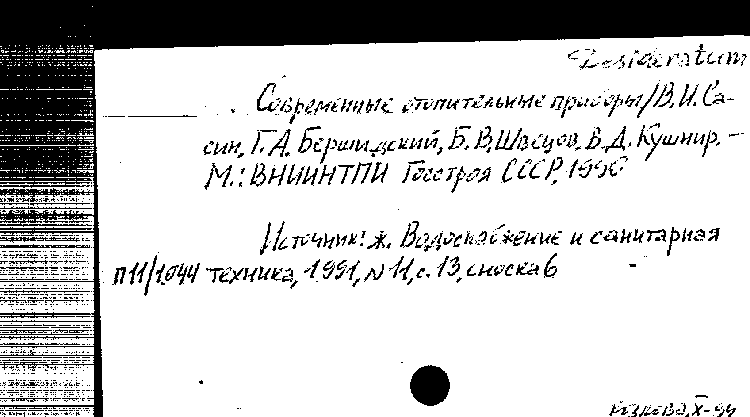 Desideratum
Современные отопительные приборы/В.И.Са-
син, Г.А. Бершидский, Б.В.Швецов, В.Д. Кушнир. –
М.: ВНИИНТПИ Госстроя СССР, 1990
Источник: ж. Водоснабжение и санитарная
П11/1044 техника, 1991, N 11, с. 13, сноска 6
X-99